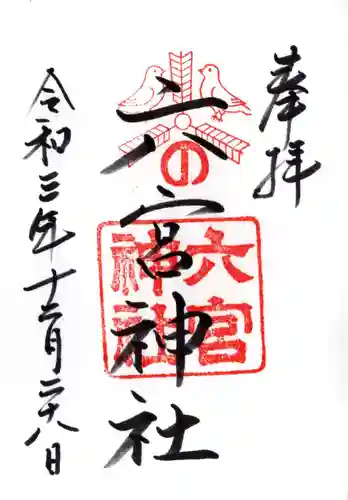 奉拝
六宮神社
六宮
神社
の
令和三年十二月二十八日